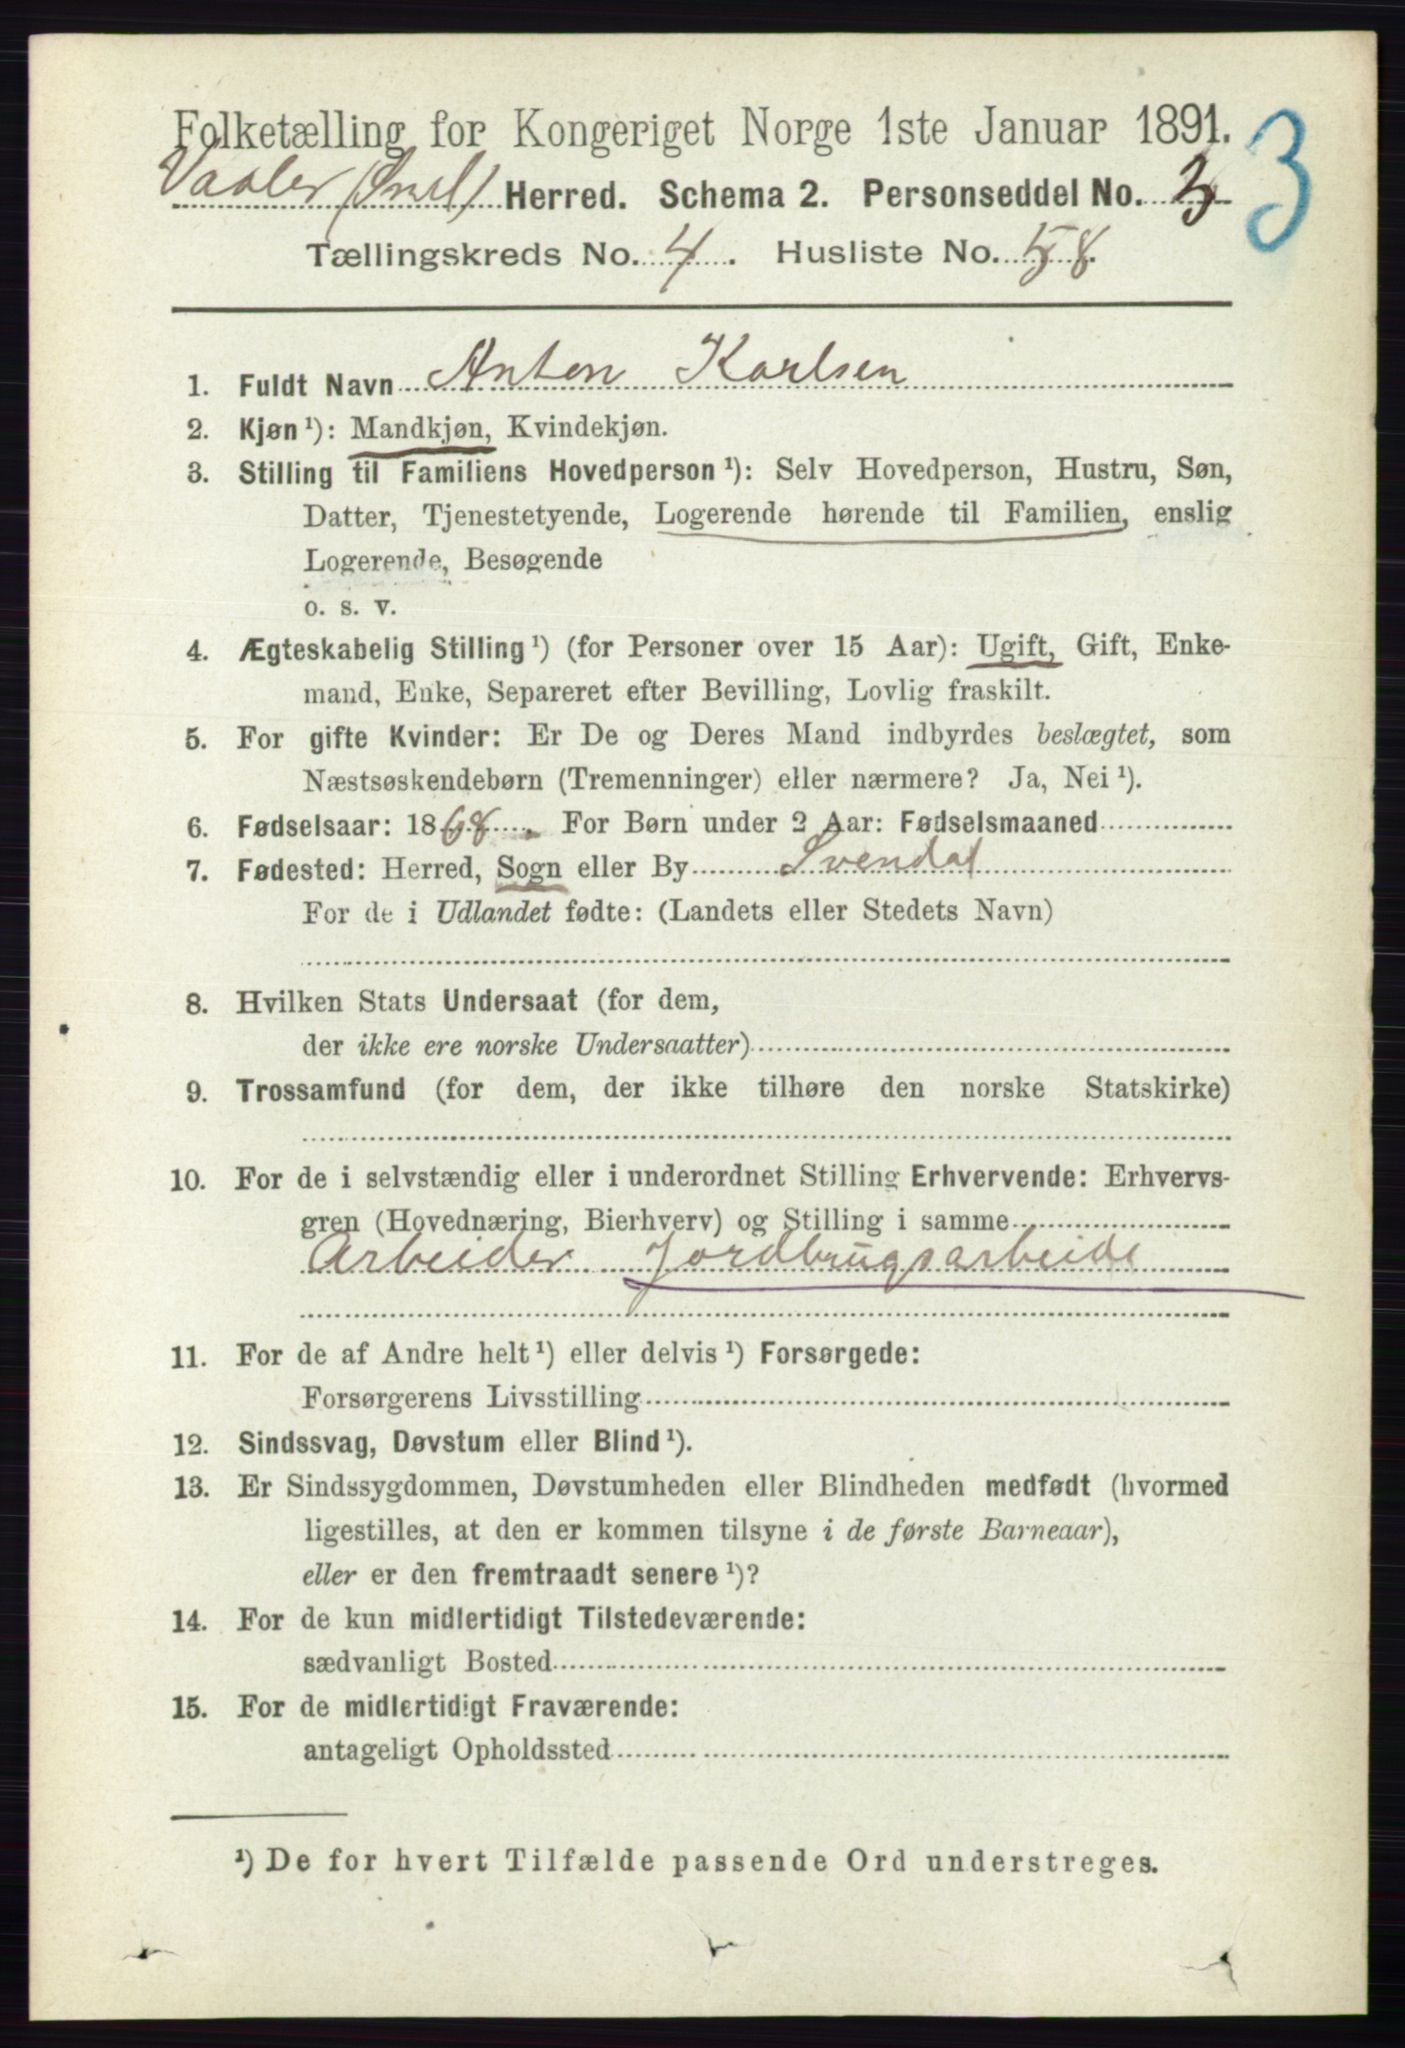 Folketælling for Kongeriget Norge 1ste Januar 1891.
3
Vaaler (Smsl) Herred. Schema 2. Personseddel No. 3
Tællingskreds No. 4. Husliste No. 58.
1. Fuldt Navn Anton Karlsen
2. Kjøn ¹): Mandkjøn, Kvindekjøn.
3. Stilling til Familiens Hovedperson ¹): Selv Hovedperson, Hustru, Søn,
Datter, Tjenestetyende, Logerende hørende til Familien, enslig
Logerende, Besøgende
o. s. v.
4. Ægteskabelig Stilling ¹) (for Personer over 15 Aar): Ugift, Gift, Enke-
mand, Enke, Separeret efter Bevilling, Lovlig fraskilt.
5. For gifte Kvinder: Er De og Deres Mand indbyrdes beslægtet, som
Næstsøskendebørn (Tremenninger) eller nærmere? Ja, Nei ¹).
6. Fødselsaar: 1868. For Børn under 2 Aar: Fødselsmaaned
7. Fødested: Herred, Sogn eller By Svendal
For de i Udlandet fødte: (Landets eller Stedets Navn)
8. Hvilken Stats Undersaat (for dem,
der ikke ere norske Undersaatter)
9. Trossamfund (for dem, der ikke tilhøre den norske Statskirke)
10. For de i selvstændig eller i underordnet Stilling Erhvervende: Erhvervs-
gren (Hovednæring, Bierhverv) og Stilling i samme
Arbeider Jordbrugsarbeide
11. For de af Andre helt ¹) eller delvis ¹) Forsørgede:
Forsørgerens Livsstilling
12. Sindssvag, Døvstum eller Blind ¹).
13. Er Sindssygdommen, Døvstumheden eller Blindheden medfødt (hvormed
ligestilles, at den er kommen tilsyne i de første Barneaar),
eller er den fremtraadt senere ¹)?
14. For de kun midlertidigt Tilstedeværende:
sædvanligt Bosted
15. For de midlertidigt Fraværende:
antageligt Opholdssted
¹) De for hvert Tilfælde passende Ord understreges.